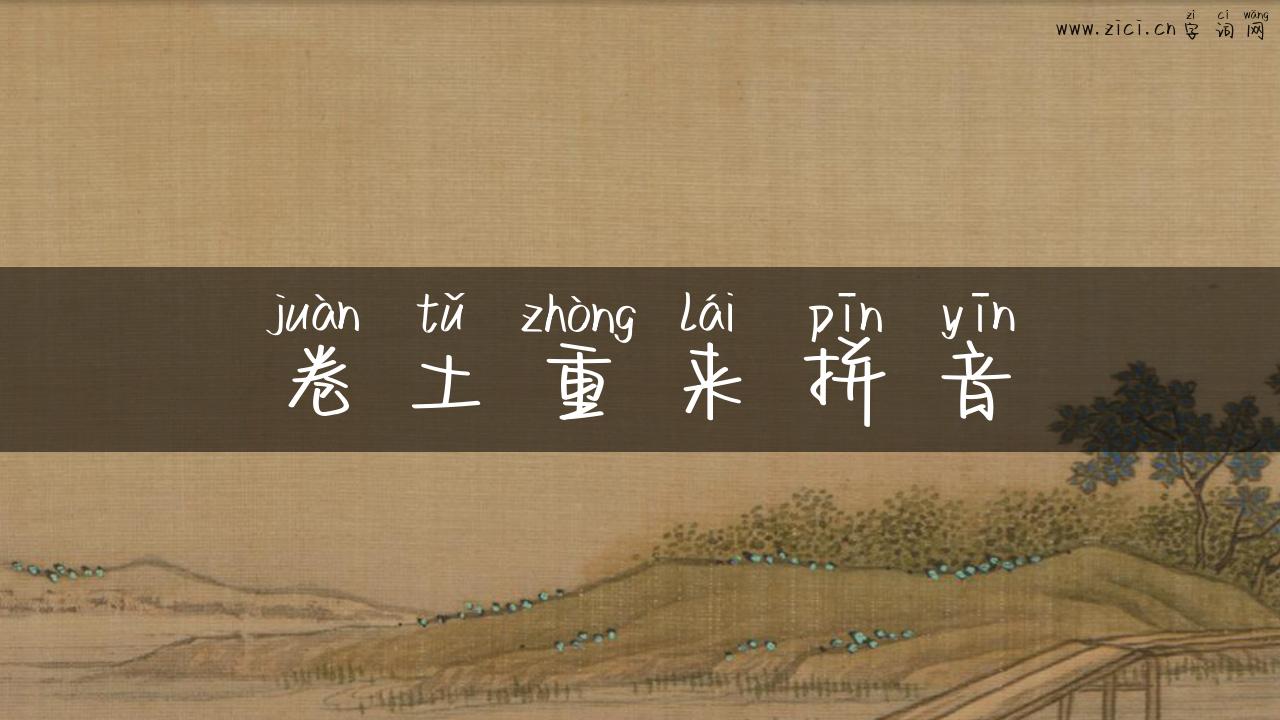 zì cí wǎng
www.zici.cn 字词网
juàn tǔ zhòng lái pīn yīn
卷土重来拼音